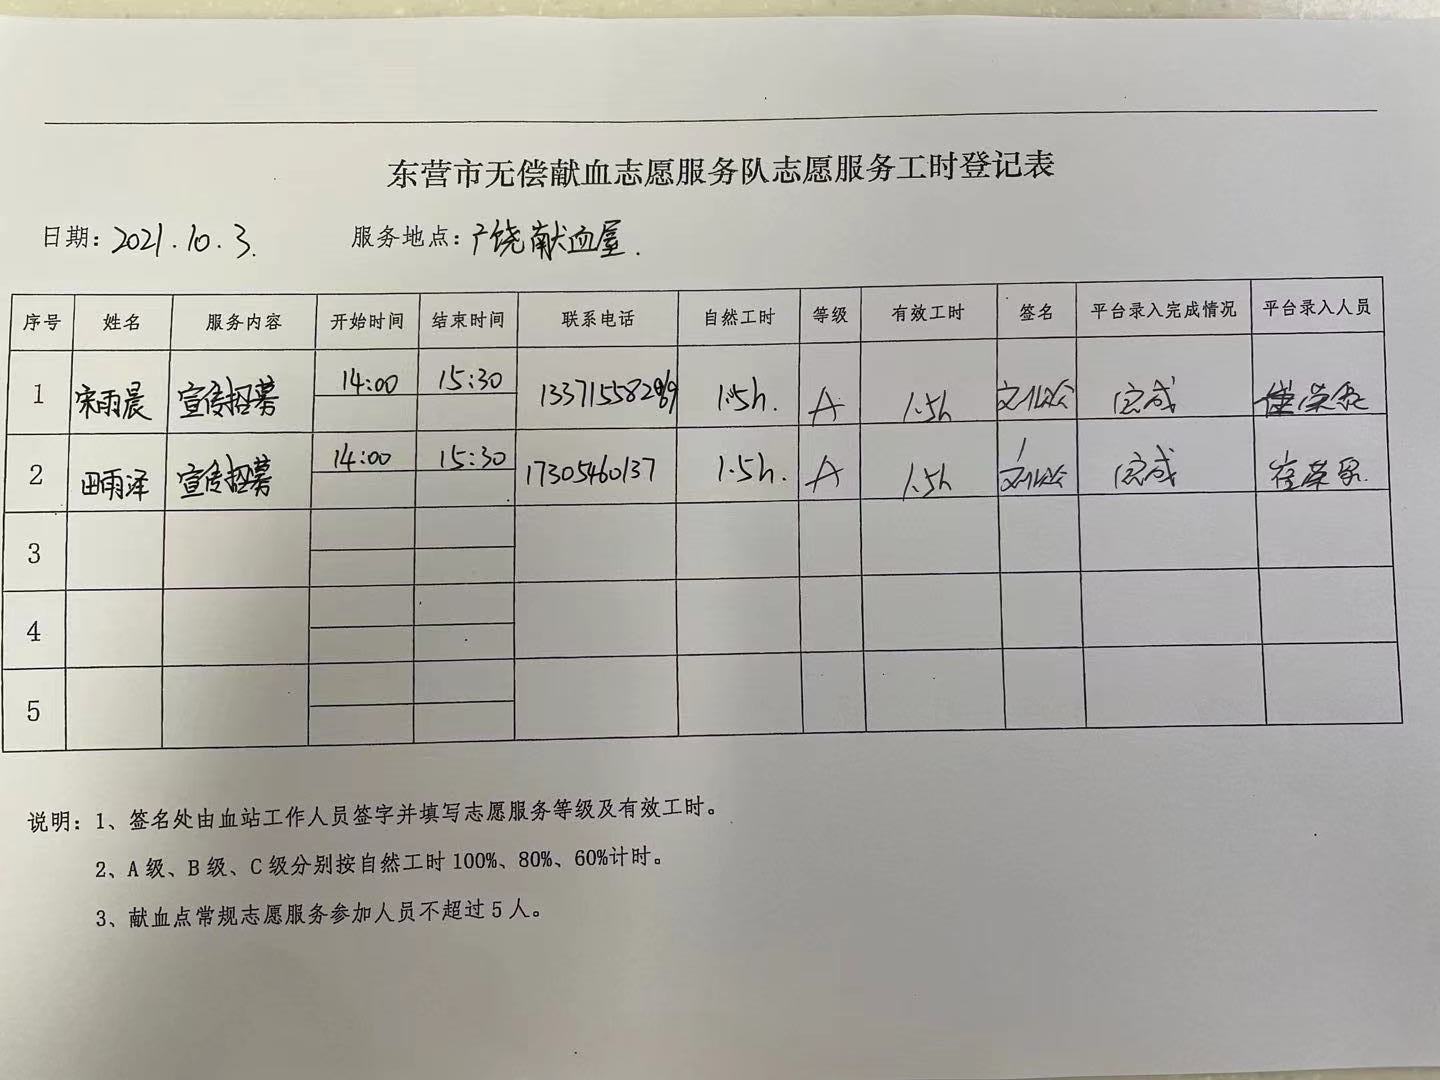 东营市无偿献血志愿服务队志愿服务工时登记表
日期：2021.10.3. 服务地点：广饶献血屋.
序号 姓名 服务内容 开始时间 结束时间 联系电话 自然工时 等级 有效工时 签名 平台录入完成情况 平台录入人员
1 宋雨晨 宣传招募 14:00 15:30 1.5h. A 1.5h 完成
2 田雨泽 宣传招募 14:00 15:30 17305460137 1.5h. A 1.5h 完成
3
4
5
说明：1、签名处由血站工作人员签字并填写志愿服务等级及有效工时。
2、A 级、B 级、C 级分别按自然工时 100%、80%、60%计时。
3、献血点常规志愿服务参加人员不超过 5 人。